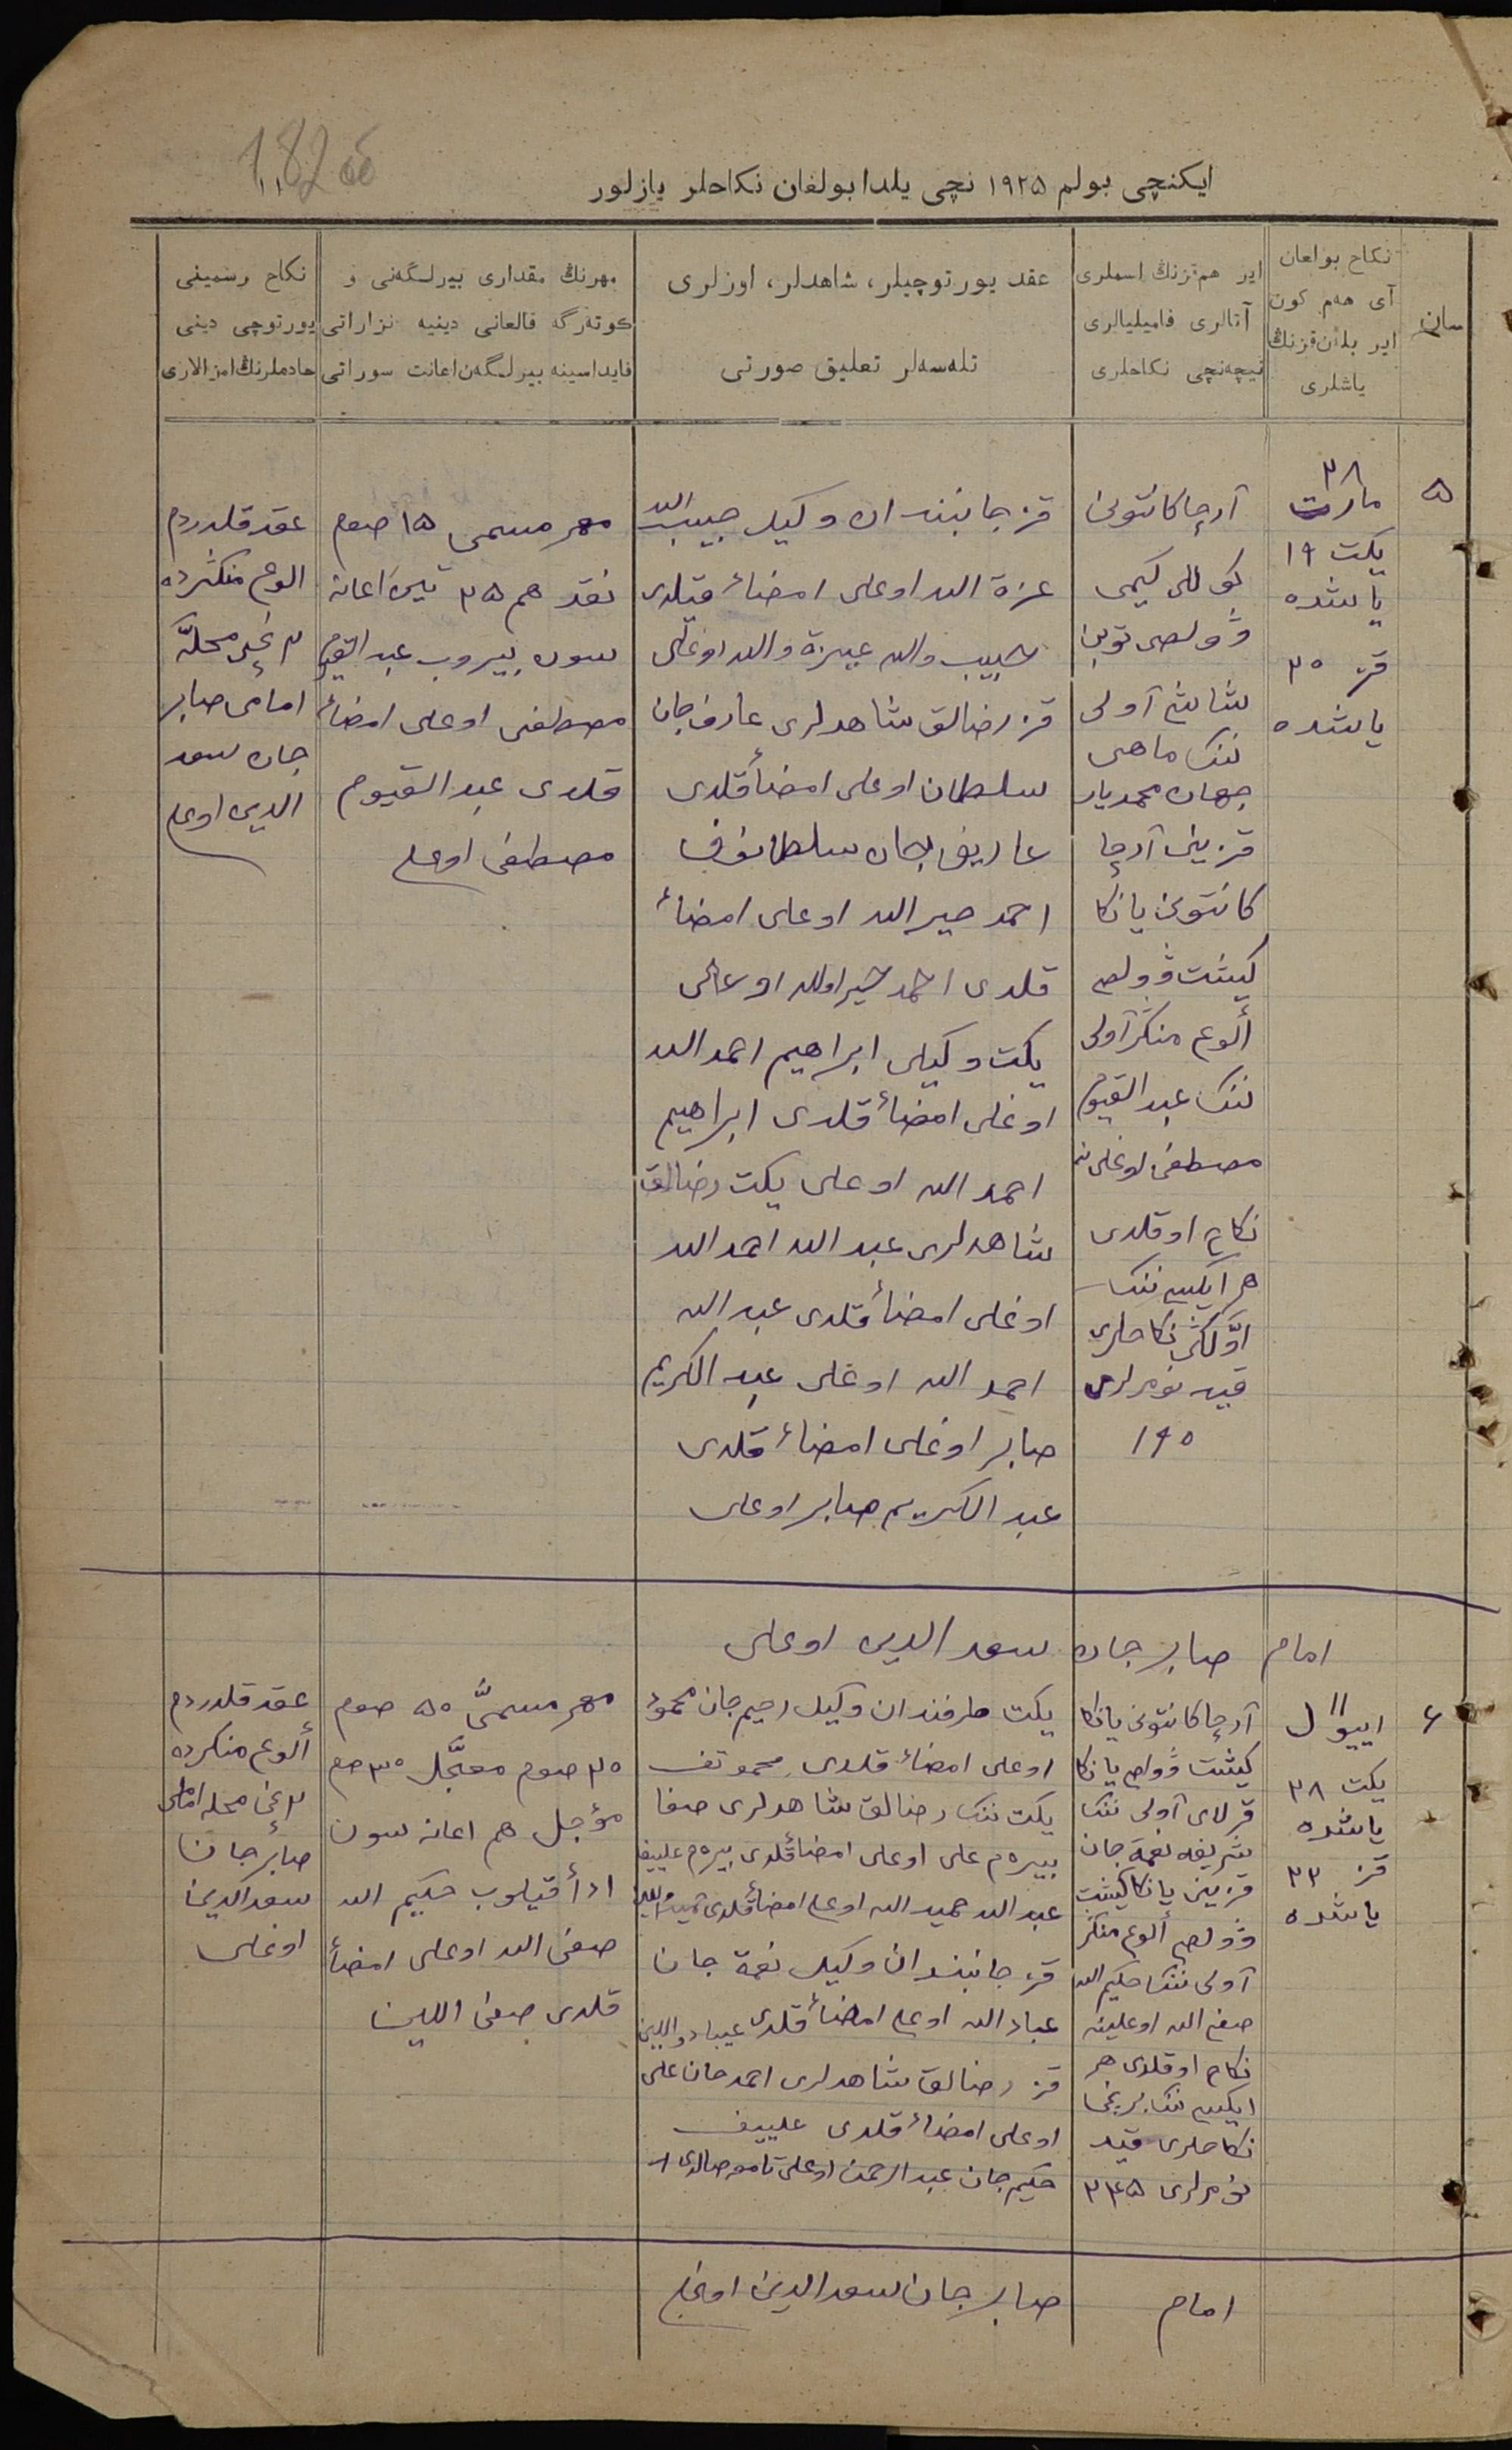 182 об
ایکنچی بولم ۱۹۲۵ نچی یلدا بولغان نکاحلر یازلور
سان
نکاح بولعان
آی هەم کون
ایر بلەن قزنڭ
یاشلری
ایر هم قزنڭ اسملری
آتالری فامیلیالری
نیچەنچی نکاحلری
عقد یورتوچیلر، شاهدلر، اوزلری
تلەسەلر تعلیق صورتی
مهرنڭ مقداری بیرلگەنی و
کوتەرگە قالعانی دینیە نزاراتی
فایداسینە بیرلگەن اعانت سوراتی
نکاح رسمینی
یورتوچی دینی
خادملرنڭ امزالاری
۵
۲۸
مارت
یکت ۱۹
یاشده
قز ۲۰
یاشده
آرچا کانتونی
وولصی توبن
شاشی آولی
ننک ماهی
جهان محمدیار
قزینی آرچا
کانتونی یانکا
کیشت وولصی
ألوع منکر آولی
ننک عبد القیوم
مصطفی اوغلی نه
نکاح اوقلدی
هر ایکیسی ننک
اولکی نکاحلری
قید نومرلری
۱۹۰
قز جانبندان وکیل حبیب الله
عزة الله اوعلی امضاء قیلدی
حبیب والله عیزة والله اوغلی
قز رضالق شاهدلری عارف جان
سلطان اوعلی امضاء قلدی
عاریف جان سلطانوف
احمد خیر الله اوعلی امضاء
قلدی احمد خیراولله اوعلی
یکت وکیلی ابراهیم احمد الله
اوغلی امضاء قلدی ابراهیم
احمد الله اوعلی یکت رضالق
شاهدلری عبد الله احمد الله
اوغلی امضاء قلدی عبد الله
احمد الله اوغلی عبد الکریم
صابر اوغلی امضاء قلدی
عبد الکریم صابر اوعلی
مهر مسمی ۱۵ صوم
نقد هم ۲۵ تین اعانه
سون بیروب عبد القیوم
مصطفی اوعلی امضاء
قلدی عبد القیوم
مصطفی اوعلی
عقد قلدردم
الوع منکرده
۲ نچی محله
امامی صابر
جان سعد
الدین اوعلی
امام صابر جان سعد الدین اوعلی
۶
۱۱
اییول
یکت ۲۸
یاشده
قز ۲۲
یاشده
آرچا کانتونی یانکا
کیشت وولصی یانکا
قرلای آولی ننک
شریفه نعمة جان
قزینی یانکا کیشت
وولصی ألوع منکر
آولی ننک حکیم الله
صفی الله اوعلینه
نکاح اوقلدی هر
ایکیسی ننک برنچی
نکاحلری قید
نومرلری ۲۴۵
یکت طرفندان وکیل رحیم جان محمود
اوعلی امضاء قلدی محموتف
یکت ننک رضالق شاهدلری صفا
بیرم علی اوعلی امضاء قلدی بیرم علییف
عبد الله حمید الله اوعلی امضاء قلدی
قز جانبندان وکیل نعمة جان
عباد الله اوعلی امضاء قلدی عیبادوللین
قز رضالق شاهدلری احمد جان علی
اوعلی امضاء قلدی علییف
حکیم جان عبد الرحمن اوعلی
مهر مسمی ۵۰ صوم
۲۰ صوم معجل ۳۰ صوم
مؤجل هم اعانه سون
ادأ قیلوب حکیم الله
صفی الله اوعلی امضاء
قلدی صفی اللین
عقد قلدردم
ألوع منکرده
۲ نچی محله امامی
صابر جان
سعد الدین
اوغلی
امام صابر جان سعد الدین اوغلی